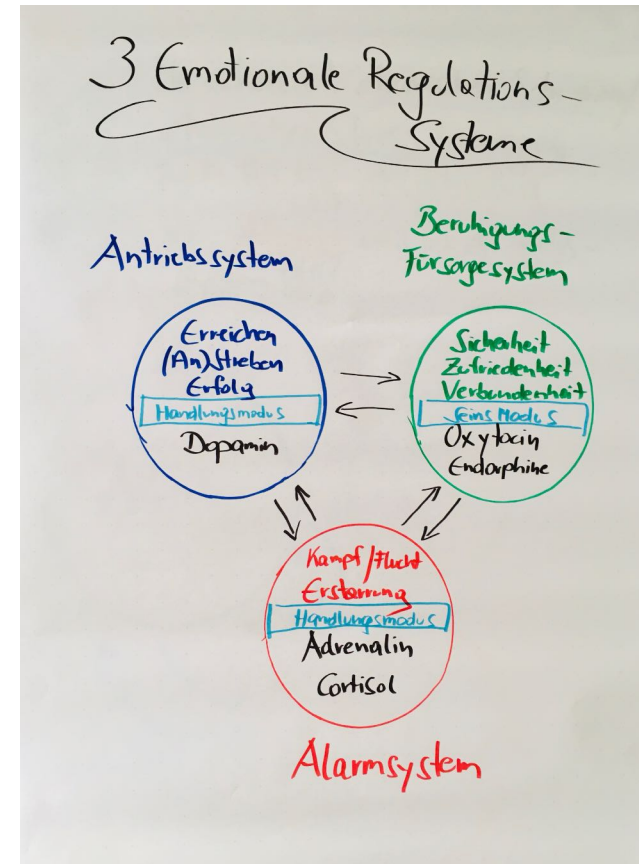 3 Emotionale Regulations-
Systeme
Antriebssystem
Erreichen
(An)Streben
Erfolg
Handlungsmodus
Dopamin
Beruhigungs-
Fürsorgesystem
Sicherheit
Zufriedenheit
Verbundenheit
Seins Modus
Oxytocin
Endorphine
Kampf/Flucht
Erstarrung
Handlungsmodus
Adrenalin
Cortisol
Alarmsystem